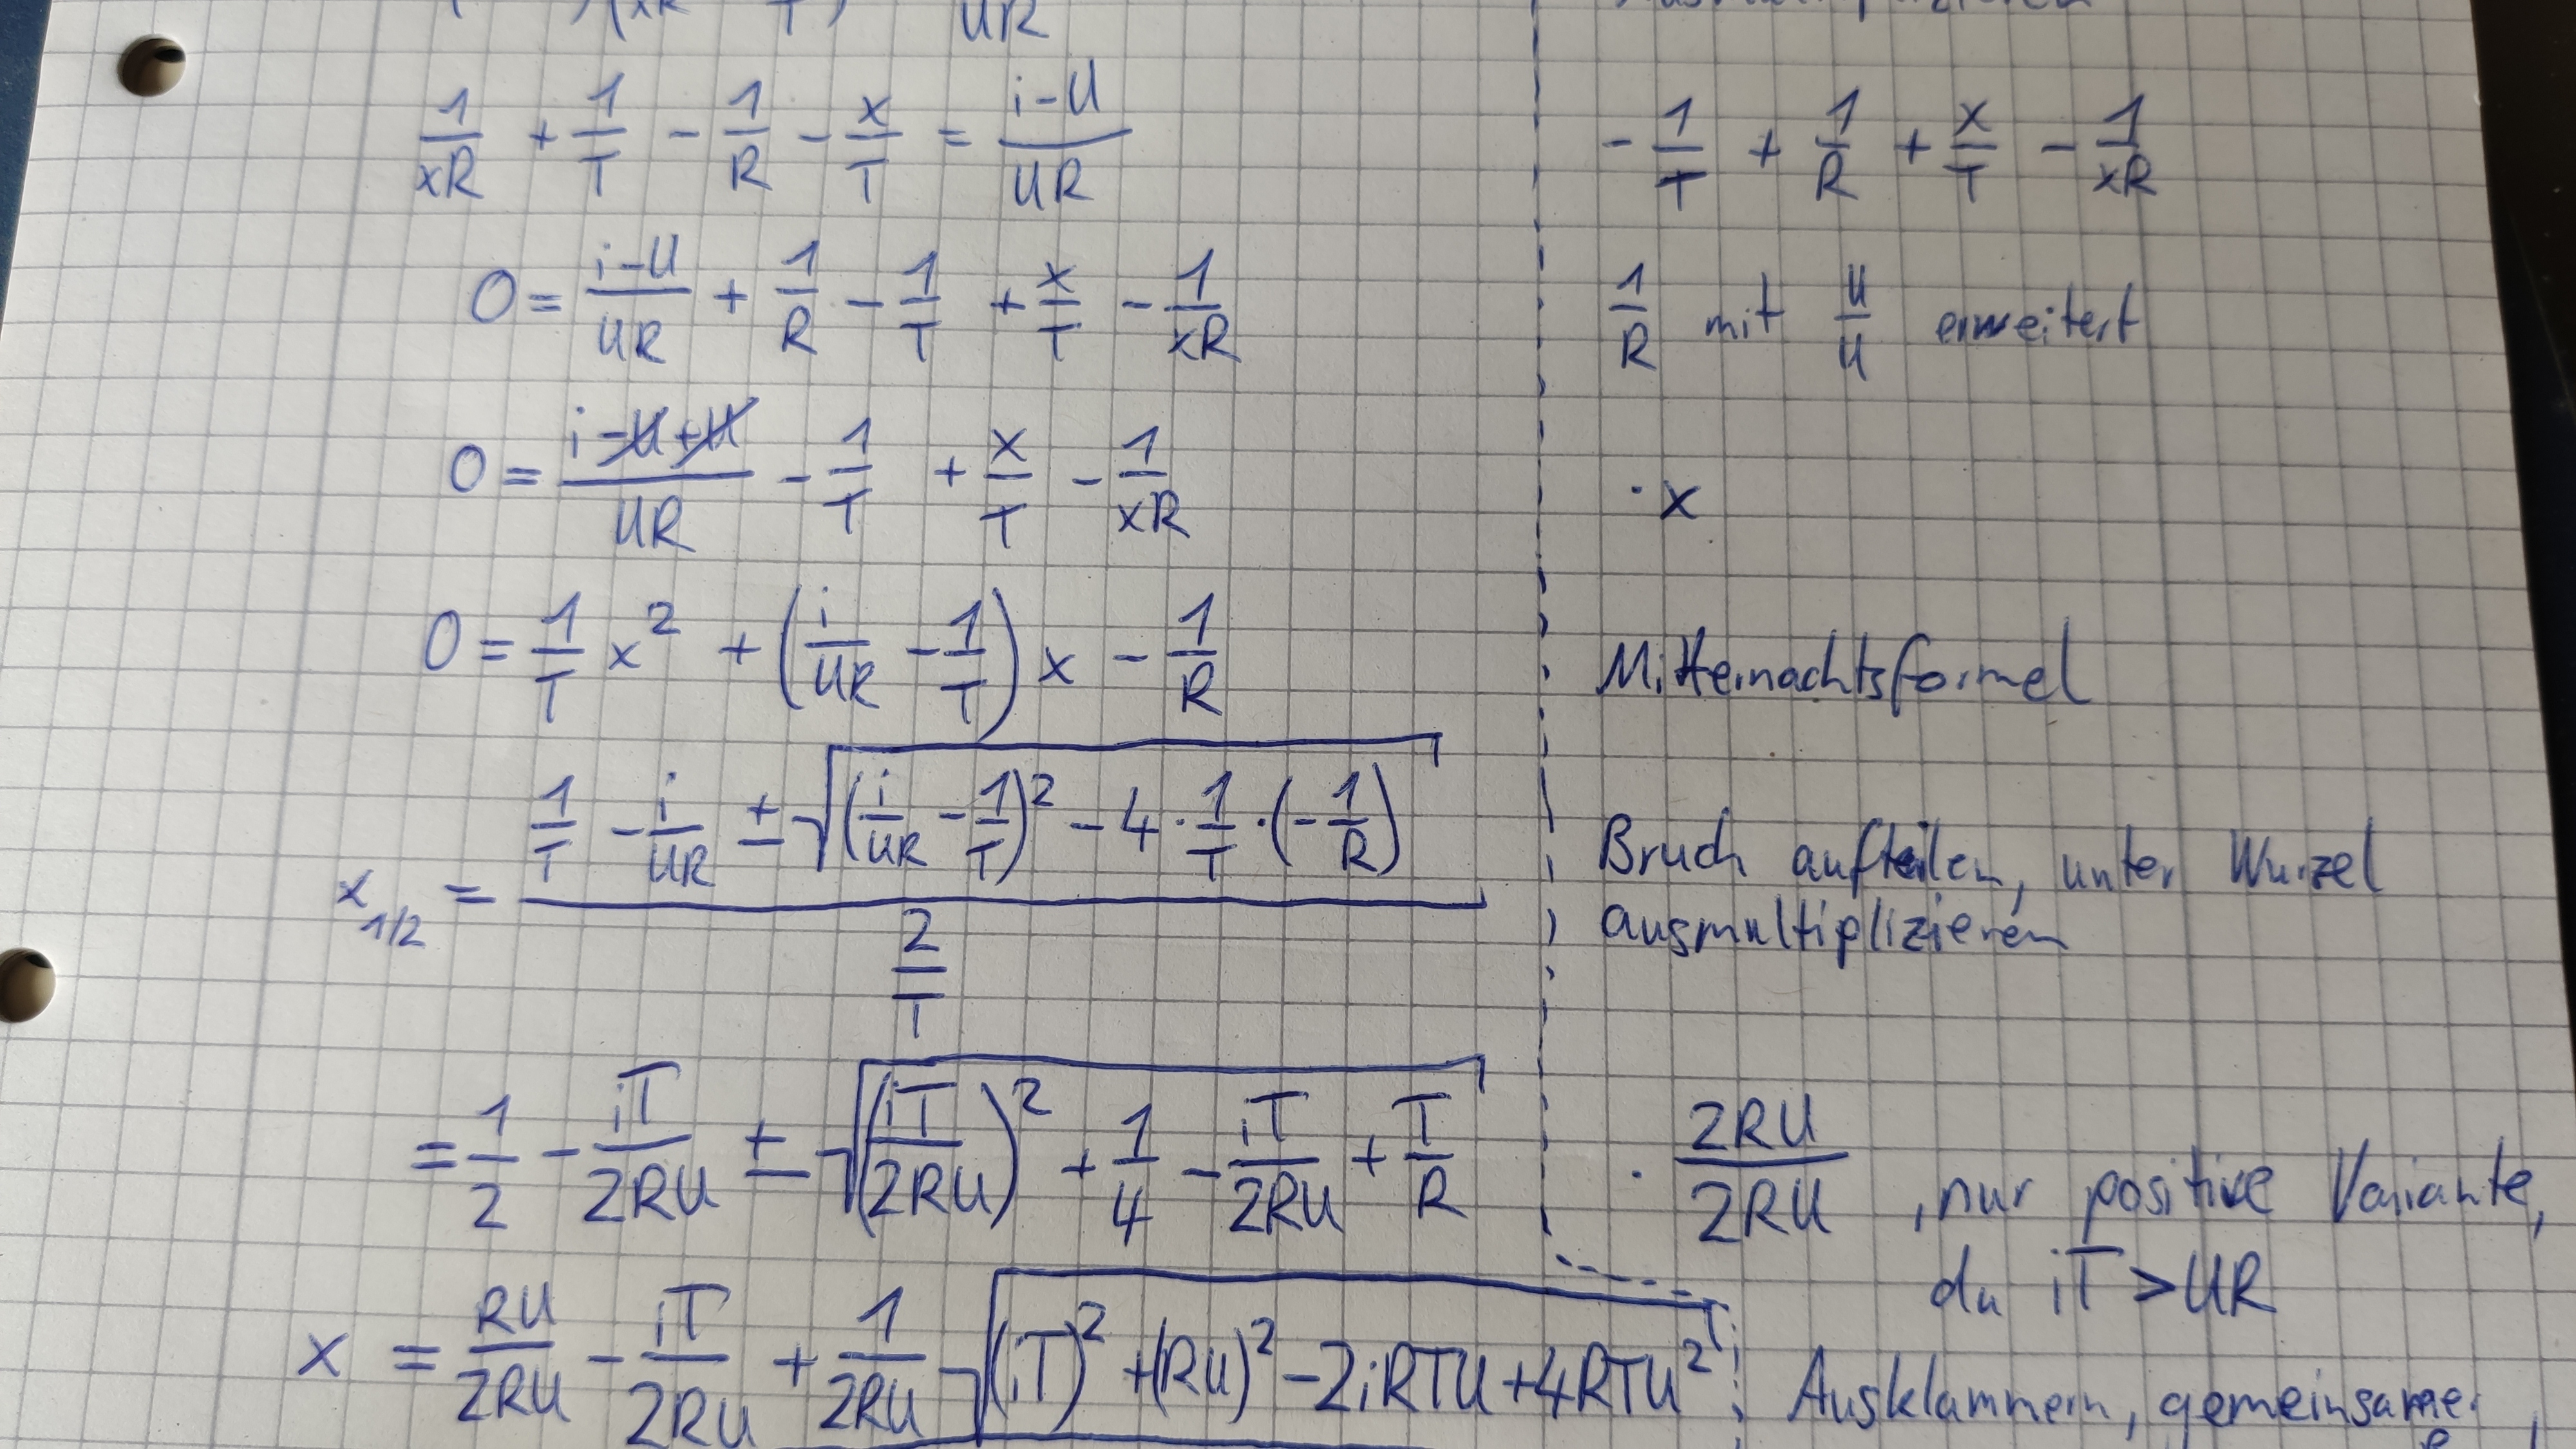 UR
1/(xR) + 1/T - 1/R - x/T = (i-U)/(UR)    - 1/T + 1/R + x/T - 1/(xR)
0 = (i-U)/(UR) + 1/R - 1/T + x/T - 1/(xR)    1/R mit U/U erweitert
0 = (i-U+U)/(UR) - 1/T + x/T - 1/(xR)    · x
0 = 1/T x² + (i/(UR) - 1/T) x - 1/R    Mitternachtsformel
x_1/2 = (1/T - i/(UR) ± √((i/(UR) - 1/T)² - 4 · 1/T · (-1/R))) / (2/T)    Bruch aufteilen, unter Wurzel
ausmultiplizieren
= 1/2 - iT/(2RU) ± √((iT/(2RU))² + 1/4 - iT/(2RU) + T/R)    · 2RU/(2RU) , nur positive Variante,
da iT > UR
x = RU/(2RU) - iT/(2RU) + 1/(2RU) √((iT)² + (RU)² - 2iRTU + 4RTU²)    Ausklammern, gemeinsamer